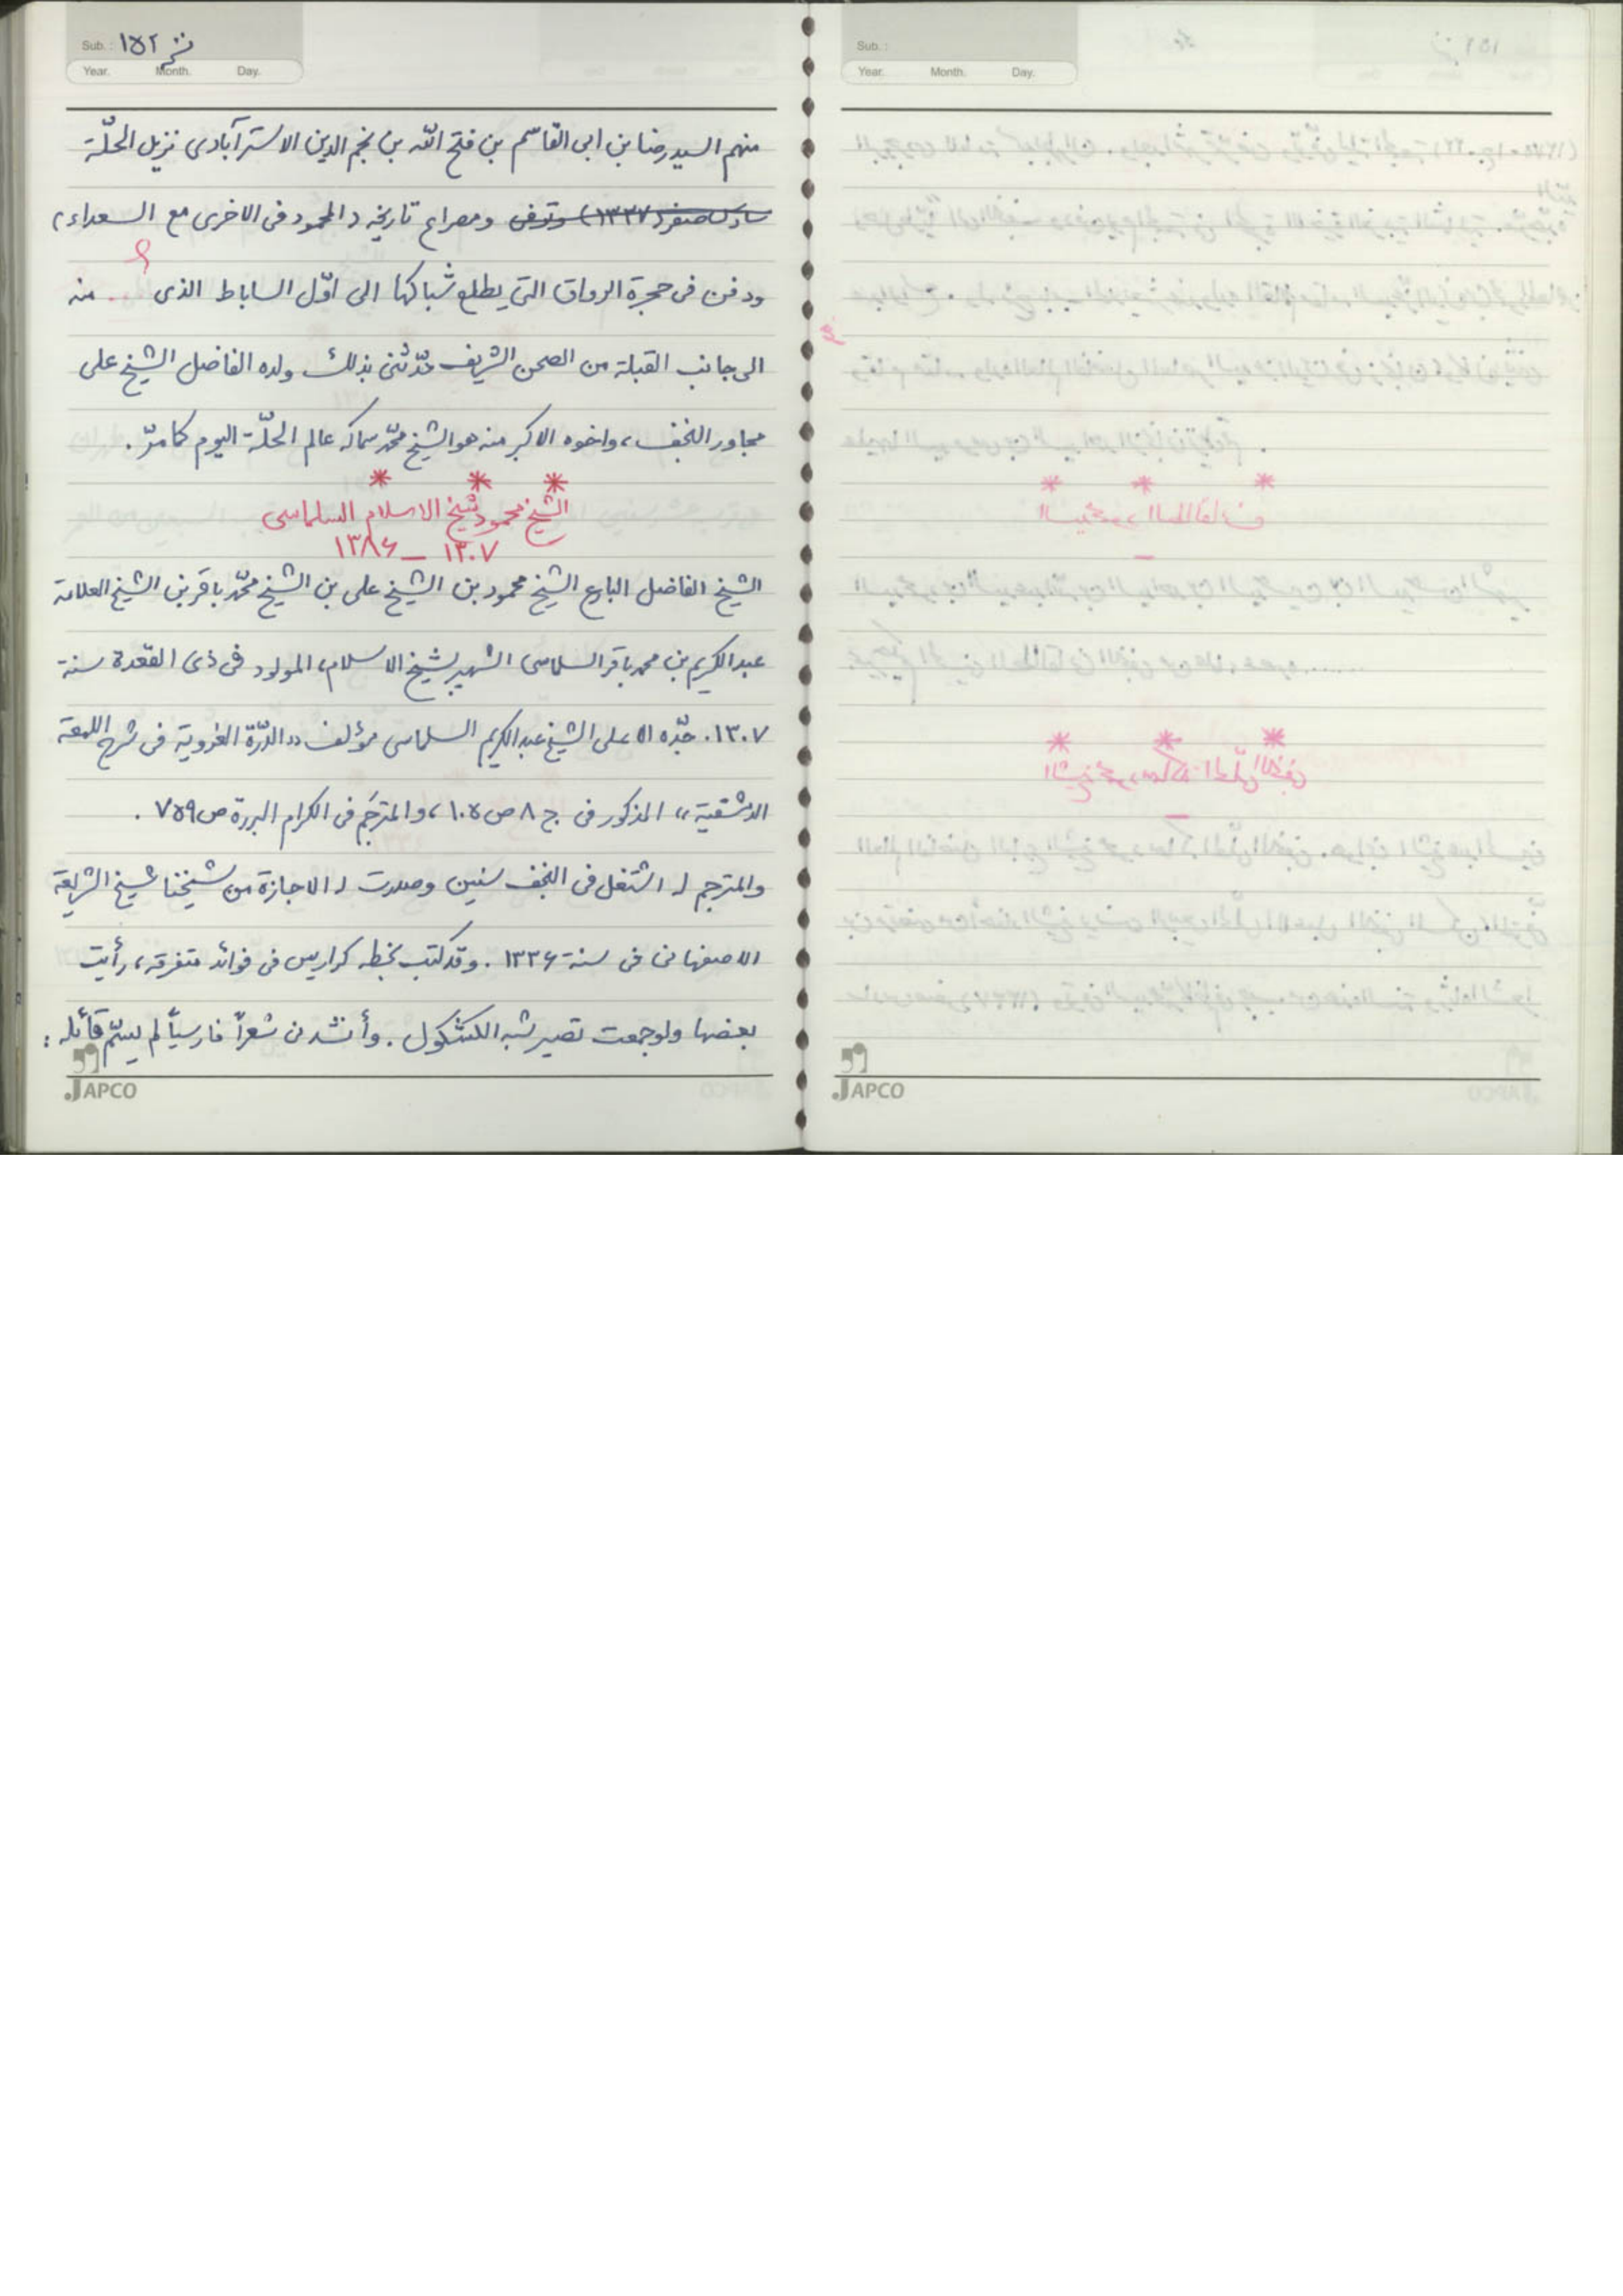 Sub.: ١٥٢ ش
Year. Month. Day.
منهم السيد رضا بن ابى القاسم بن فتح اللّه بن نجم الدين الاسترآبادى نزيل الحلّة
سادس صفر (١٣٣٧) وتوفى ومصراع تاريخه (المحمود فى الاخرى مع السعداء)
ودفن فى حجرة الرواق التى يطلع شباكها الى اوّل الساباط الذى ... منه
الى جانب القبلة من الصحن الشريف حدّثنى بذلك ولده الفاضل الشيخ على
مجاور النجف، واخوه الاكبر منه هو الشيخ محمّد سماكه عالم الحلّة اليوم كما مرّ.
* * *
الشيخ محمود شيخ الاسلام السلماسى
١٣٠٧ – ١٣٨۶
الشيخ الفاضل البارع الشيخ محمود بن الشيخ على بن الشيخ محمّد باقر بن الشيخ العلامة
عبد الكريم بن محمد باقر السلماسى الشهير بشيخ الاسلام، المولود فى ذى القعدة سنة
١٣٠٧. جدّه الاعلى الشيخ عبد الكريم السلماسى مؤلف «الدّرّة الغروية فى شرح اللمعة
الدمشقية» المذكور فى ج ٨ ص ١٠٥، والمترجَم فى الكرام البررة ص ٧٥٩.
والمترجم له اشتغل فى النجف سنين وصدرت له الاجازة من شيخنا شيخ الشريعة
الاصفهانى فى سنة ١٣٣۶. وقد كتب بخطه كراريس فى فوائد متفرقه، رأيت
بعضها ولو جمعت تصير شبه الكشكول. وأنشدنى شعراً فارسياً لم يسمّ قائله:
JAPCO
Sub.:
Year. Month. Day.
JAPCO